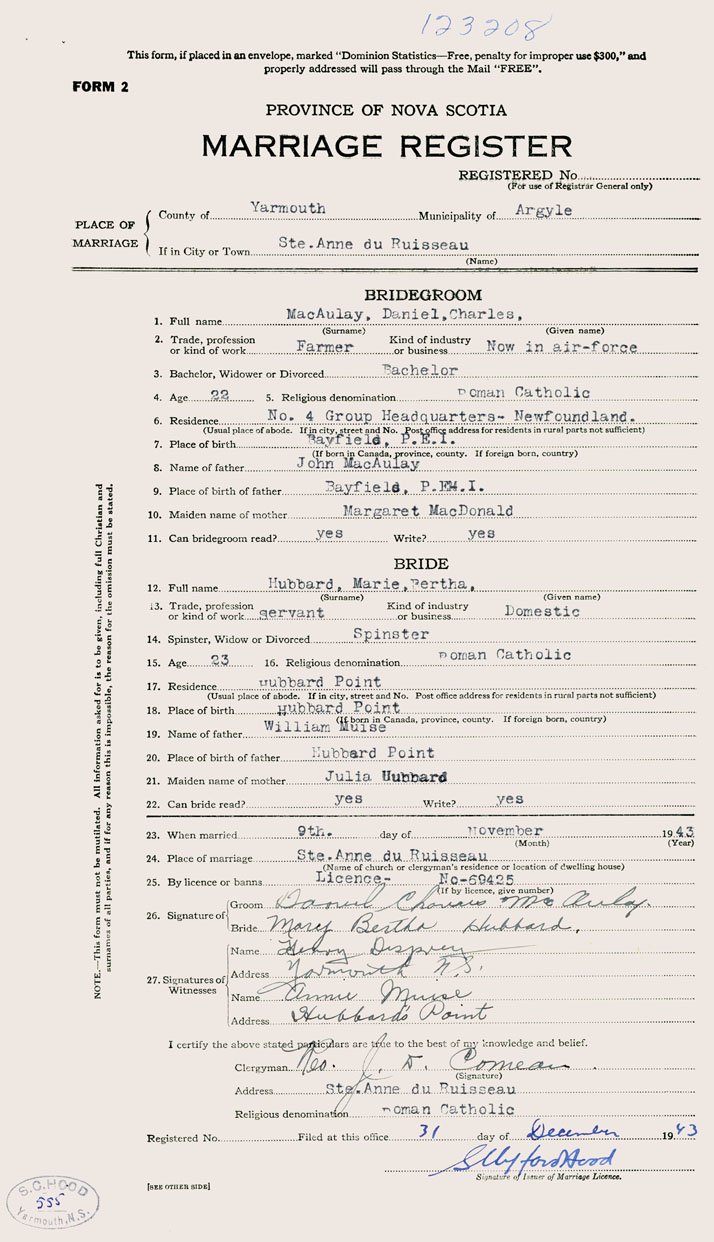 123208
This form, if placed in an envelope, marked "Dominion Statistics—Free, penalty for improper use $300," and
properly addressed will pass through the Mail "FREE".
FORM 2
PROVINCE OF NOVA SCOTIA
MARRIAGE REGISTER
REGISTERED No.
(For use of Registrar General only)
PLACE OF MARRIAGE
County of Yarmouth Municipality of Argyle
If in City or Town Ste.Anne du Ruisseau
(Name)
BRIDEGROOM
1. Full name MacAulay, Daniel,Charles,
(Surname) (Given name)
2. Trade, profession or kind of work Farmer Kind of industry or business Now in air-force
3. Bachelor, Widower or Divorced Bachelor
4. Age 22 5. Religious denomination Roman Catholic
6. Residence No. 4 Group Headquarters- Newfoundland.
(Usual place of abode. If in city, street and No. Post office address for residents in rural parts not sufficient)
7. Place of birth Bayfield, P.E.I.
(If born in Canada, province, county. If foreign born, country)
8. Name of father John MacAulay
9. Place of birth of father Bayfield, P.E.I.
10. Maiden name of mother Margaret MacDonald
11. Can bridegroom read? yes Write? yes
BRIDE
12. Full name Hubbard, Marie,Bertha,
(Surname) (Given name)
13. Trade, profession or kind of work servant Kind of industry or business Domestic
14. Spinster, Widow or Divorced Spinster
15. Age 23 16. Religious denomination Roman Catholic
17. Residence Hubbard Point
(Usual place of abode. If in city, street and No. Post office address for residents in rural parts not sufficient)
18. Place of birth Hubbard Point
(If born in Canada, province, county. If foreign born, country)
19. Name of father William Muise
20. Place of birth of father Hubbard Point
21. Maiden name of mother Julia Hubbard
22. Can bride read? yes Write? yes
23. When married 9th. day of November 1943
(Month) (Year)
24. Place of marriage Ste.Anne du Ruisseau
(Name of church or clergyman's residence or location of dwelling house)
25. By licence or banns Licence- No-69425
(If by licence, give number)
26. Signature of
Groom Daniel Charles MacAulay.
Bride Mary Bertha Hubbard.
27. Signatures of Witnesses
Name Henry
Address Yarmouth N.S.
Name Annie Muise
Address Hubbard's Point
I certify the above stated particulars are true to the best of my knowledge and belief.
Clergyman Rev. J. D. Comeau
(Signature)
Address Ste.Anne du Ruisseau
Religious denomination Roman Catholic
Registered No. Filed at this office 31 day of December 1943
Hood
Signature of Issuer of Marriage Licence.
[SEE OTHER SIDE]
S.C. HOOD
555
Yarmouth, N.S.
NOTE.—This form must not be mutilated. All information asked for is to be given, including full Christian and
surnames of all parties, and if for any reason this is impossible, the reason for the omission must be stated.